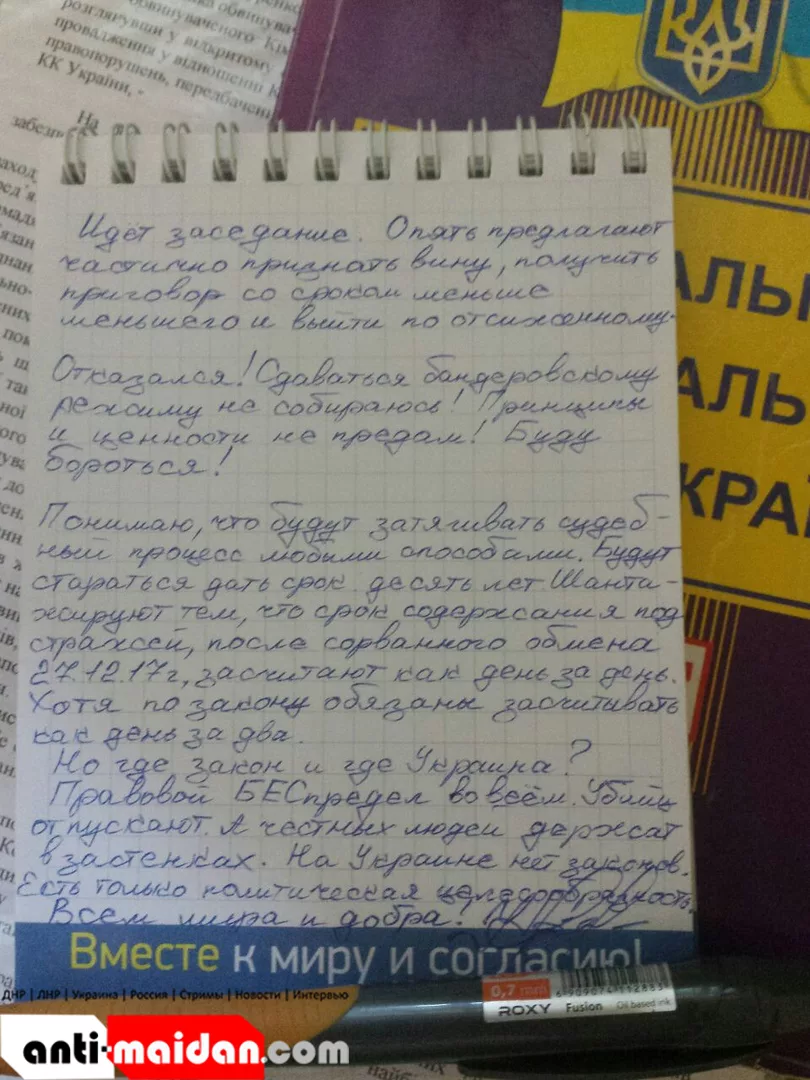 розглягувши у відкритому
обвинуваченого Кім
провадження у відношенні К
правопорушень, передбачені
КК України, -
На
Идёт заседание. Опять предлагают
частично признать вину, получить
приговор со сроком меньше
меньшего и выйти по отсиженному.
Отказался! Сдаваться бандеровскому
режиму не собираюсь! Принципы
и ценности не предам! Буду
бороться!
Понимаю, что будут затягивать судеб-
ный процесс любыми способами. Будут
стараться дать срок десять лет Шанта-
жируют тем, что срок содержания под
стражей, после сорванного обмена
27.12.17г, засчитают как день за день.
Хотя по закону обязаны засчитывать
как день за два.
Но где закон и где Украина?
Правовой БЕСпредел во всём. Убийц
отпускают. А честных людей держат
в застенках. На Украине нет законов.
Есть только политическая целесообразность.
Всем мира и добра!
Вместе к миру и согласию!
АЛЬ
АЛЬ
КРАЇ
0,7 mm
ROXY Fusion Oil based ink
ДНР | ЛНР | Украина | Россия | Стримы | Новости | Интервью
anti-maidan.com